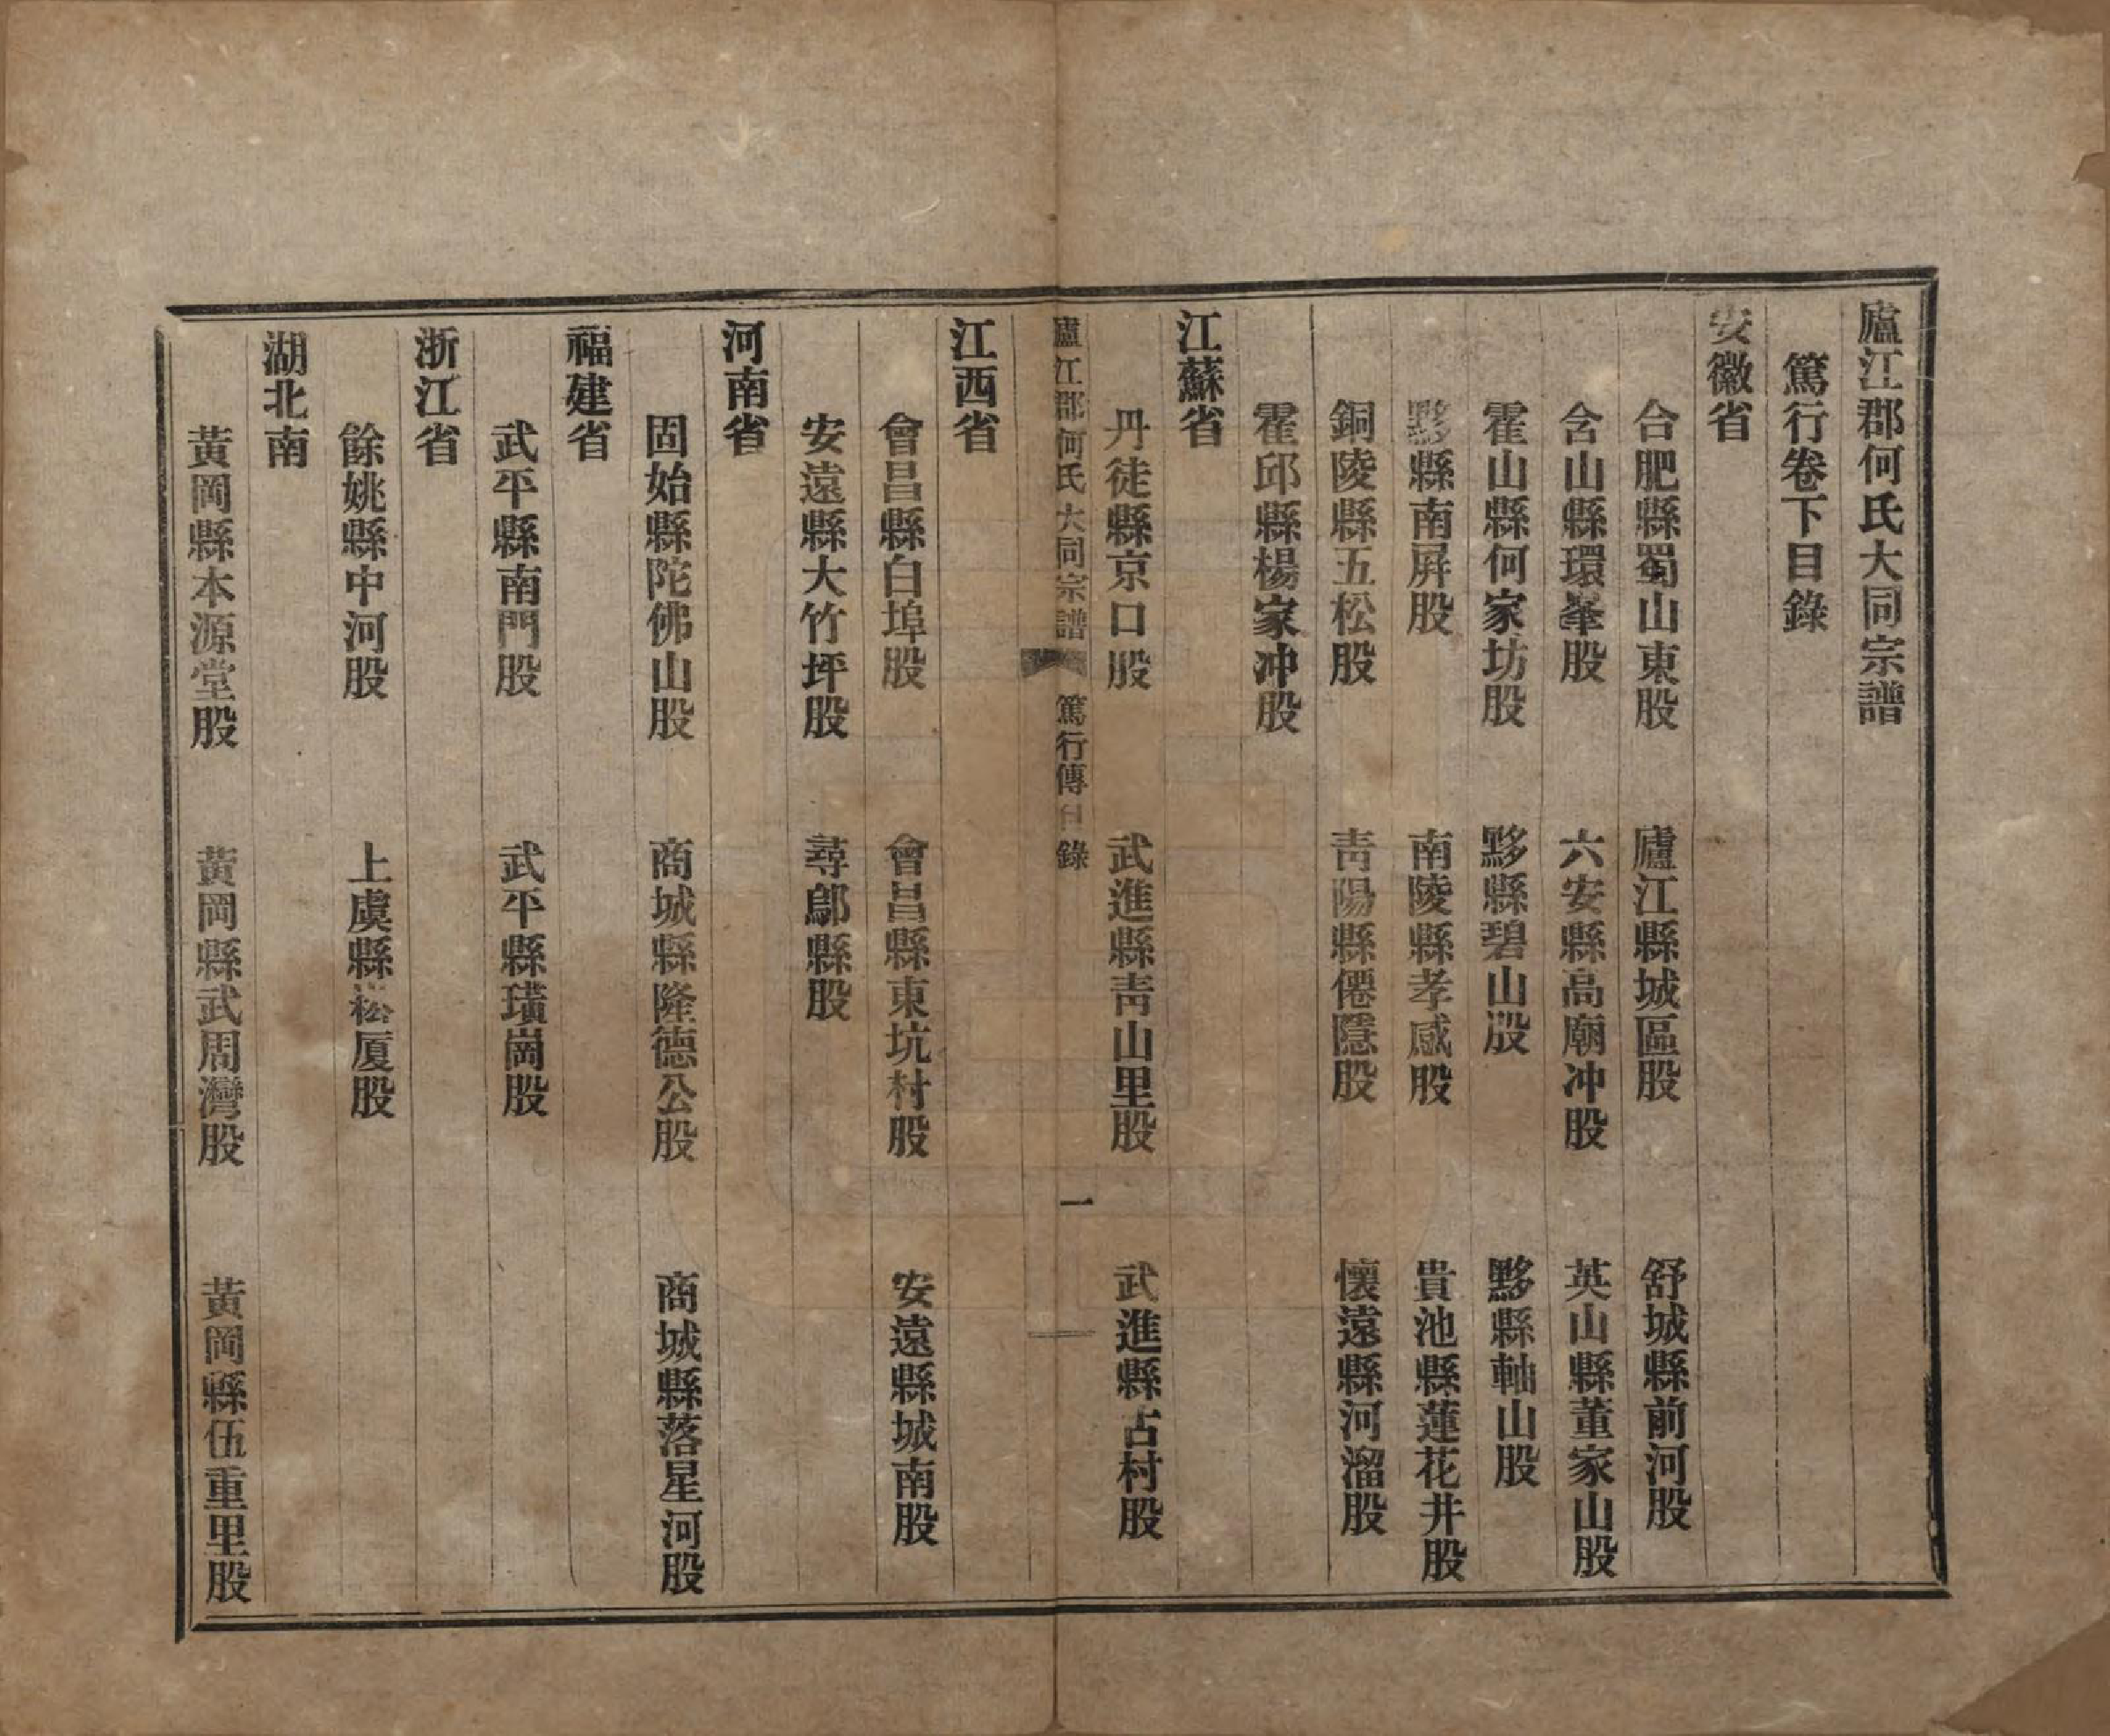 廬江郡何氏大同宗譜
篤行卷下目錄
安徽省
合肥縣蜀山東股　廬江縣城區股　舒城縣前河股
含山縣環峯股　六安縣高廟冲股　英山縣董家山股
霍山縣何家坊股　黟縣碧山股　黟縣軸山股
黟縣南屏股　南陵縣孝感股　貴池縣蓮花井股
銅陵縣五松股　青陽縣僊隱股　懷遠縣河溜股
霍邱縣楊家冲股
江蘇省
丹徒縣京口股　武進縣青山里股　武進縣古村股
廬江郡何氏大同宗譜　篤行傳目錄　一
江西省
會昌縣白埠股　會昌縣東坑村股　安遠縣城南股
安遠縣大竹坪股　尋鄔縣股
河南省
固始縣陀佛山股　商城縣隆德公股　商城縣落星河股
福建省
武平縣南門股　武平縣璜崗股
浙江省
餘姚縣中河股　上虞縣崧厦股
湖北南
黃岡縣本源堂股　黃岡縣武周灣股　黃岡縣伍重里股